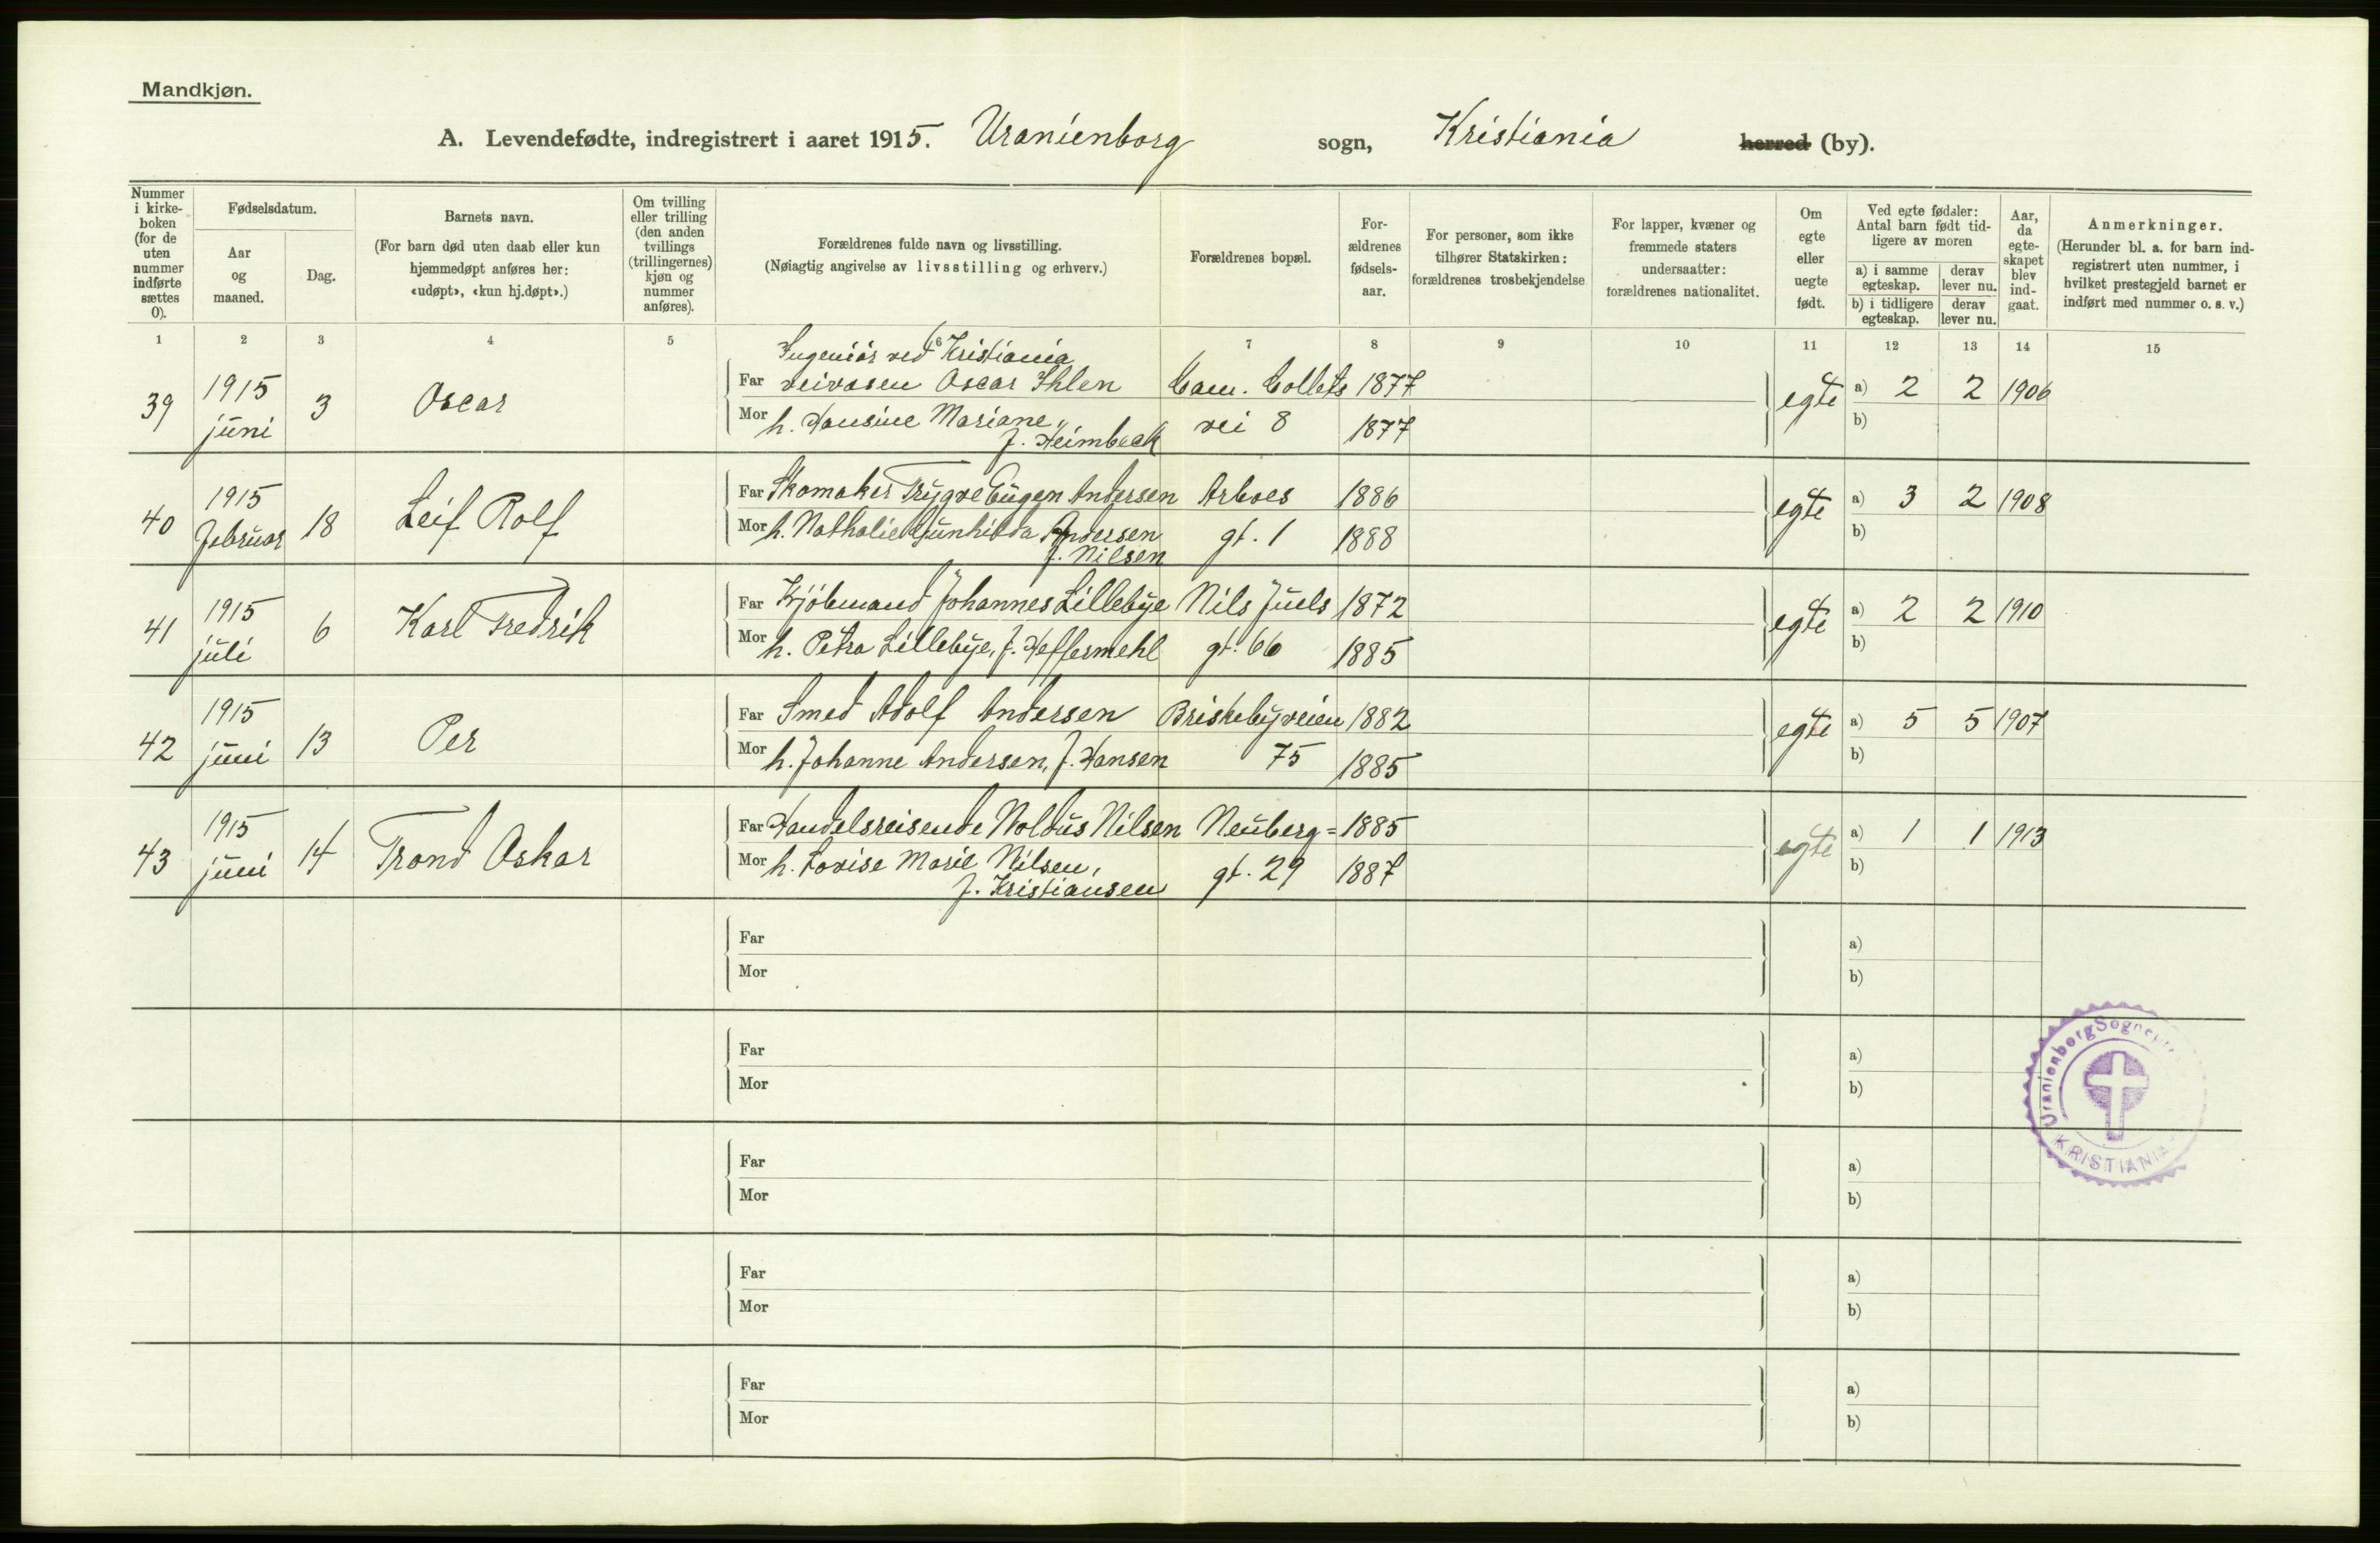 Mandkjøn.
A. Levendefødte, indregistrert i aaret 1915. Uranienborg sogn, Kristiania herred (by).
Nummer i kirke-boken (for de uten nummer indførte sættes 0).
Fødselsdatum.
Aar og maaned.
Dag.
Barnets navn.
(For barn død uten daab eller kun hjemmedøpt anføres her: «udøpt», «kun hj.døpt».)
Om tvilling eller trilling (den anden tvillings (trillingernes) kjøn og nummer anføres).
Forældrenes fulde navn og livsstilling.
(Nøiagtig angivelse av livsstilling og erhverv.)
Forældrenes bopæl.
For-ældrenes fødsels-aar.
For personer, som ikke tilhører Statskirken: forældrenes trosbekjendelse
For lapper, kvæner og fremmede staters undersaatter: forældrenes nationalitet.
Om egte eller uegte født.
Ved egte fødsler: Antal barn født tid-ligere av moren
a) i samme egteskap.
derav lever nu.
b) i tidligere egteskap.
derav lever nu.
Aar, da egte-skapet blev ind-gaat.
Anmerkninger.
(Herunder bl. a. for barn ind-registrert uten nummer, i hvilket prestegjeld barnet er indført med nummer o. s. v.)
1 2 3 4 5 6 7 8 9 10 11 12 13 14 15
Ingeniør ved Kristiania
39 1915 juni 3 Oscar Far veivæsen Oscar Ihlen Cam. Colletts 1877 egte a) 2 2 1906
Mor h. Hansine Mariane, vei 8 1877 b)
f. Heimbeck
40 1915 Februar 18 Leif Rolf Far Skomaker Trygve Eugen Andersen Arboes 1886 egte a) 3 2 1908
Mor h. Nathalie Gunhilda Andersen gt. 1 1888 b)
f. Nilsen
41 1915 juli 6 Karl Fredrik Far Kjöbmand Johannes Lillebye Nils Juels 1872 egte a) 2 2 1910
Mor h. Petra Lillebye, f. Heffermehl gt. 66 1885 b)
42 1915 juni 13 Per Far Smed Adolf Andersen Briskebyveien 1882 egte a) 5 5 1907
Mor h. Johanne Andersen, f. Hansen 75 1885 b)
43 1915 juni 14 Trond Oskar Far Handelsreisende Noldus Nilsen Neuberg= 1885 egte a) 1 1 1913
Mor h. Lovise Marie Nilsen, gt. 29 1887 b)
f. Kristiansen
Far a)
Mor b)
Far a)
Mor b)
Far a)
Mor b)
Far a)
Mor b)
Far a)
Mor b)
Uranienborg
KRISTIANIA